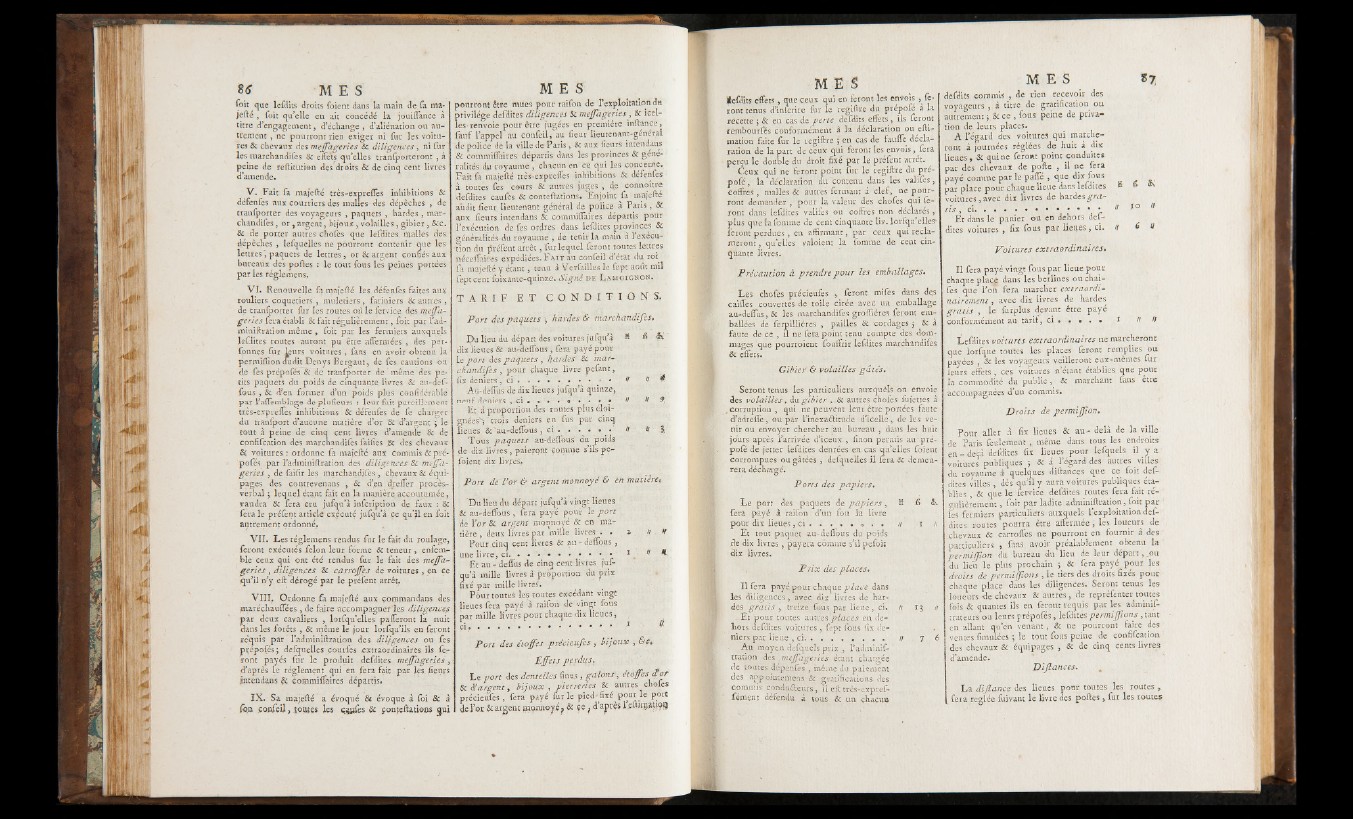 86 M E S
soit que lesdits droits soient dans la main de sa ma-
jesté, soit qu'elle en ait concédé la jouissance à
titre d'engagement, d'échange, d'aliénation ou au-
trement, ne pourront rien exiger ni sur les voitu-
res & chevaux des messageries & diligences, ni sur
les marchandises & effets qu'elles transporteront, à
peine de restitution des droits & de cinq cent livres
d'amende.
V. Fait sa majesté très-expresses inhibitions &
défenses aux courriers des malles des dépêches, de
transporter des voyageurs, paquets, hardes, mar-
chandises, or, argent, bijoux, volailles, gibier, &c.
& de porter autres choses que lesdites malles des
dépêches, lesquelles ne pourront contenir que les
lettres, paquets de lettres, or & argent confiés aux
bureaux des postes : le tout sous les peines portées
par les réglemens.
VI. Renouvelle sa majesté les défenses faites aux
rouliers coquetiers, muletiers, fatiniers & autres,
de transporter sur les routes où le service des messa-
geries sera établi & fait réguliérement, soit par l'ad-
ministration même, soit par les fermiers auxquels
lesdites routes auront pu être affermées, des per-
sonnes sur leurs voitures, sans en avoir obtenu la
permission dudit Denys Bergaut, de ses cautions ou
de ses préposés & de transporter de même des pe-
tits paquets du poids de cinquante livres & au-des-
sous, & d'en former d'un poids plus considérable
par l'assemblage de plusieurs : leur fait pareillement
très-expresses inhibitions & défenses de se charger
du transport d'aucune matière d'or & d'argent ; le
tout à peine de cinq cent livres d'amende & de
confiscation des marchandises saisies & des chevaux
& voitures : ordonne sa majesté aux commis & pré-
posés par l'administration des diligences & messa-
geries, de saisir les marchandises, chevaux & équi-
pages des contrevenans, & d'en dresser procès-
verbal ; lequel étant fait en la manière accoutumée,
vaudra & sera cru jusqu'à inscription de faux : &
sera le présent article exécuté jusqu'à ce qu'il en soit
autrement ordonné.
VII. Les réglemens rendus sur le fait du roulage,
seront exécutés selon leur forme & teneur, ensem-
ble ceux qui ont été rendus sur le fait des messa-
geries, diligences & carrosses de voitures, en ce
qu'il n'y est dérogé par le présent arrêt.
VIII. Ordonne sa majesté aux commandans des
maréchaussées, de faire accompagner les diligences
par deux cavaliers, lorsqu'elles passeront la nuit
dans les forêts, & même le jour lorsqu'ils en seront
requis par l'administration des diligences ou ses
préposés ; desquelles courses extraordinaires ils se-
ront payés sur le produit desdites messageries,
d'après le réglement qui en sera fait par les sieurs
intendans & commissaires départis.
IX. Sa majesté a évoqué & évoque à soi & à
son conseil, toutes les causes & contestations qui
M E S
pourront être mues pour raison de l'exploitation du
privilége desdites diligences & messageries, & icel-
les renvoie pour être jugées en première instance,
sauf l'appel au conseil, au sieur lieutenant-général
de police de la ville de Paris, & aux sieurs intendans
& commissaires départis dans les provinces & géné-
ralités du royaume, chacun en ce qui les concerne.
Fait sa majesté très-expresses inhibitions & défenses
à toutes ses cours & autres juges, de connoître
desdites causes & contestations. Enjoint sa majesté
audit sieur lieutenant général de police à Paris, &
aux sieurs intendans & commissaires départis pour
l'exécution de ses ordres dans lesdites provinces &
généralités du royaume, de tenir la main à l'exécu-
tion du présent arrêt, sur lequel seront toutes lettres
nécessaires expédiées. FAIT au conseil d'état du roi
sa majesté y étant, tenu à Versailles le sept août mil
sept cent soixante-quinze. Signé DE LAMOIGNON.
TARIF ET CONDITIONS.
Port des paquets, hardes & marchandises.
Du lieu du départ des voitures jusqu'à ₶ ß &
dix lieues & au-dessous, sera payé pour
le port des paquets, hardes & mar-
chandises, pour chaque livre pesant,
six deniers, ci . . . . . . . . . . " 0 6
Au-dessus de dix lieues jusqu'à quinze,
neuf deniers, ci . . . . . . . . . . " " 9
Et à proportion des routes plus éloi-
gnées ; trois deniers en sus par cinq
lieues & au-dessous, ci . . . . . . " " 3
Tous paquets au-dessous du poids
de dix livres, paieront comme s'ils pe-
soient dix livres.
Port de l'or & argent monnoyé & en matière.
Du lieu du départ jusqu'à vingt lieues
& au-dessous, sera payé pour le port
de l'or & argent monnoyé & en ma-
tière, deux livres par mille livres . . 2 " "
Pour cinq cent livres & au-dessous,
une livre, ci. . . . . . . . . . . 1 " "
Et au-dessus de cinq cent livres jus-
qu'à mille livres à proportion du prix
fixé par mille livres.
Pour toutes les routes excédant vingt
lieues sera payé à raison de vingt sous
par mille livres pour chaque dix lieues,
ci . . . . . . . . . . . . . . . . 1 "
Port des étoffes précieuses, bijoux, &c.
Effets perdus.
Le port des dentelles fines, galons, étoffes d'or
& d'argent, bijoux, pierreries & autres choses
précieuses, sera payé sur le pied fixé pour le port
de l'or & argent monnoyé, & ce, d'après l'estimation
M E S
desdits effets, que ceux qui en feront les envois, se-
ront tenus d'inscrire sur le registre du préposé à la
recette ; & en cas de perte desdits effets, ils seront
remboursés conformément à la déclaration ou esti-
mation faite sur le registre ; en cas de fausse décla-
ration de la part de ceux qui feront les envois, sera
perçu le double du droit fixé par le présent arrêt.
Ceux qui ne feront point sur le registre du pré-
posé, la déclaration du contenu dans les valises,
coffres, malles & autres fermant à clef, ne pour-
ront demander, pour la valeur des choses qui se-
ront dans lesdites valises ou coffres non déclarés,
plus que la somme de cent cinquante liv. lorsqu'elles
seront perdues, en affirmant, par ceux qui récla-
meront, qu'elles valoient la somme de cent cin-
quante livres.
Précaution à prendre pour les emballages.
Les choses précieuses, seront mises dans des
caisses couvertes de toile cirée avec un emballage
au-dessus, & les marchandises grossières seront em-
ballées de serpillières, pailles & cordages ; & à
faute de ce, il ne sera point tenu compte des dom-
mages que pourroient souffrir lesdites marchandises
& effets.
Gibier & volailles gâtés.
Seront tenus les particuliers auxquels on envoie
des volailles, du gibier, & autres choses sujettes à
corruption, qui ne peuvent leur être portées faute
d'adresse, ou par l'inexactitude d'icelle, de les ve-
nir ou envoyer chercher au bureau, dans les huit
jours après l'arrivée d'iceux, sinon permis au pré-
posé de jetter lesdites denrées en cas qu'elles soient
corrompues ou gâtées, desquelles il sera & demeu-
rera déchargé.
Ports des papiers.
Le port des paquets de papiers, ₶ ß &
sera payé à raison d'un sou la livre
pour dix lieues, ci . . . . . . . . " 1 "
Et tout paquet au-dessous du poids
de dix livres, payera comme s'il pesoit
dix livres.
Prix des places.
Il sera payé pour chaque place dans
les diligences, avec dix livres de har-
des gratis, treize sous par lieue, ci. " 13 "
Et pour toutes autres places en de-
hors desdites voitures, sept sous six de-
niers par lieue, ci. . . . . . . . . " 7 6
Au moyen desquels prix, l'adminis-
tration des messageries étant chargée
de toutes dépenses, même du paiement
des appointemens & gratifications des
commis conducteurs, il est très-expres-
sément défendu à tous & un chacun
M E S 87
desdits commis, de rien recevoir des
voyageurs, à titre de gratification ou
autrement ; & ce, sous peine de priva-
tion de leurs places.
A l'égard des voitures qui marche-
ront à journées réglées de huit à dix
lieues, & qui ne seront point conduites
par des chevaux de poste, il ne sera
payé comme par le passé, que dix sous
par place pour chaque lieue dans lesdites ₶ ß &
voitures, avec dix livres de hardes gra-
tis, ci. . . . . . . . . . . . . . " 10 "
Et dans le panier ou en dehors des-
dites voitures, six sous par lieues, ci. " 6 "
Voitures extraordinaires.
Il sera payé vingt sous par lieue pour
chaque place dans les berlines ou chai-
ses que l'on fera marcher extraordi-
nairement, avec dix livres de hardes
gratis, le surplus devant être payé
conformément au tarif, ci . . . . . 1 " "
Lesdites voitures extraordinaires ne marcheront
que lorsque toutes les places seront remplies ou
payées, & les voyageurs veilleront eux-mêmes sur
leurs effets, ces voitures n'étant établies que pour
la commodité du public, & marchant sans être
accompagnées d'un commis.
Droits de permission.
Pour aller à six lieues & au-delà de la ville
de Paris seulement, même dans tous les endroits
en-deçà desdites six lieues pour lesquels il y a
voitures publiques ; & à l'égard des autres villes
du royaume à quelques distances que ce soit des-
dites villes, dès qu'il y aura voitures publiques éta-
blies, & que le service desdites routes sera fait ré-
guliérement, soit par ladite administration, soit par
les fermiers particuliers auxquels l'exploitation des-
dites routes pourra être affermée, les loueurs de
chevaux & carrosses ne pourront en fournir à des
particuliers, sans avoir préalablement obtenu la
permission du bureau du lieu de leur départ, ou
du lieu le plus prochain ; & sera payé pour les
droits de permissions, le tiers des droits fixés pour
chaque place dans les diligences. Seront tenus les
loueurs de chevaux & autres, de représenter toutes
fois & quantes ils en seront requis par les adminis-
trateurs ou leurs préposés, lesdites permissions, tant
en allant qu'en venant, & ne pourront faire des
ventes simulées ; le tout sous peine de confiscation
des chevaux & équipages, & de cinq cents livres
d'amende.
Distances.
La distance des lieues pour toutes les routes,
sera réglée suivant le livre des postes, sur les routes